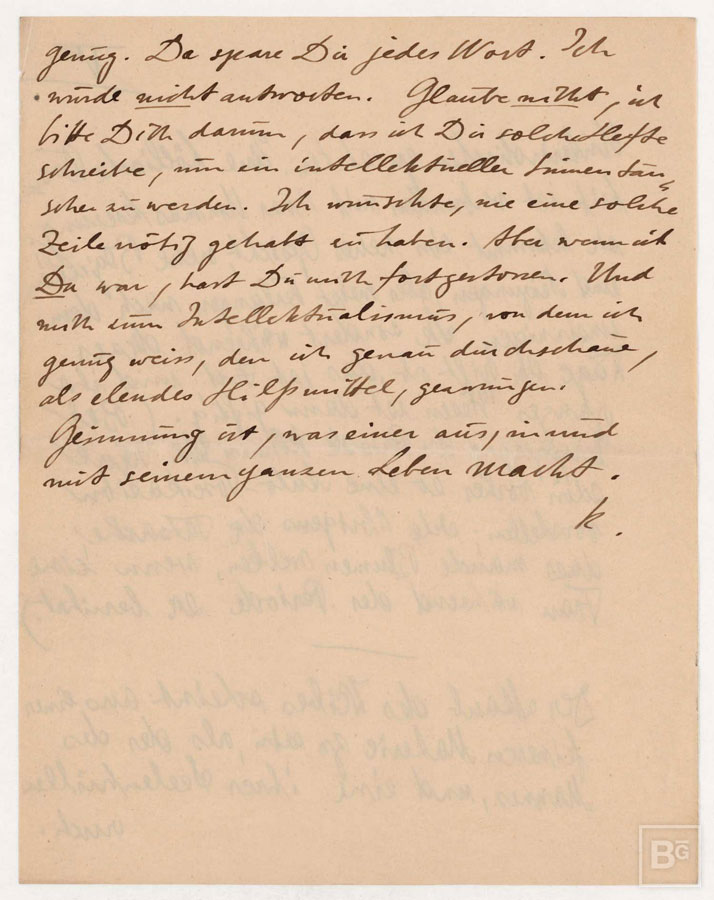 genug. Da spare Dir jedes Wort. Ich
würde nicht antworten. Glaube nicht, ich
bitte Dich darum, dass ich Dir solche Hefte
schreibe, um ein intellektueller
zu werden. Ich wünschte, nie eine solche
Zeile nötig gehabt zu haben. Aber wenn ich
Da war, hast Du mich fortgestossen. Und
mich zum Intellektualismus, von dem ich
genug weiss, den ich genau durchschaue,
als elendes Hilfsmittel, gezwungen.
Gesinnung ist, was einer aus, in und
mit seinem ganzen Leben macht.
K.
BG